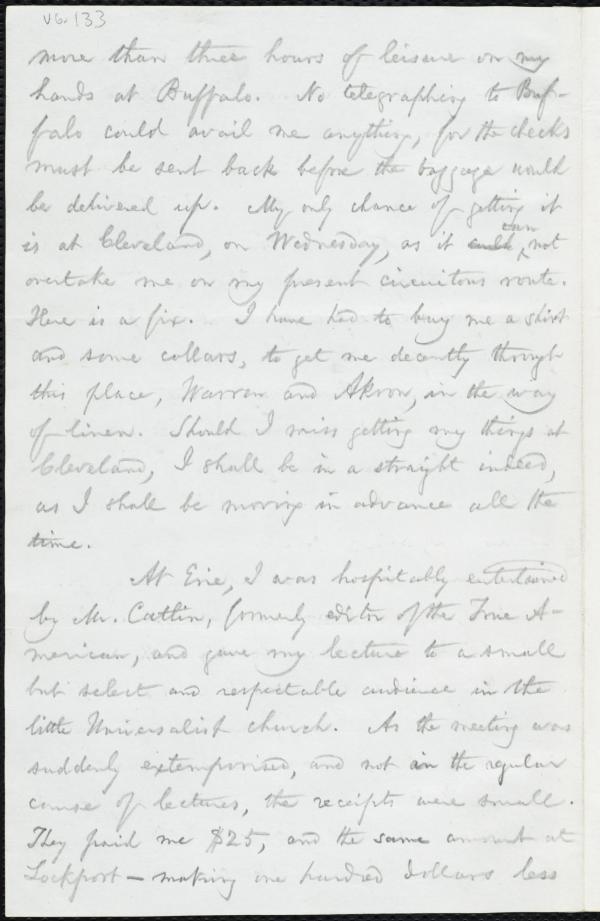 V6.133
more than three hours of leisure on my
hands at Buffalo. No telegraphing to Buf-
falo could avail me anything, for the checks
must be sent back before the baggage would
be delivered up. My only chance of getting it
is at Cleveland, on Wednesday, as it could can not
overtake me on my present circuitous route.
Here is a fix. I have had to buy me a shirt
and some collars, to get me decently through
this place, Warren and Akron, in the way
of linen. Should I miss getting my things at
Cleveland, I shall be in a straight indeed,
as I shall be moving in advance all the
time.
At Erie, I was hospitably entertained
by Mr. Catlin, formerly editor of the True A-
merican, and gave my lecture to a small
but select and respectable audience in the
little Universalist church. As the meeting was
suddenly extemporised, and not in the regular
course of lectures, the receipts were small.
They paid me $25, and the same amount at
Lockport — making one hundred dollars less